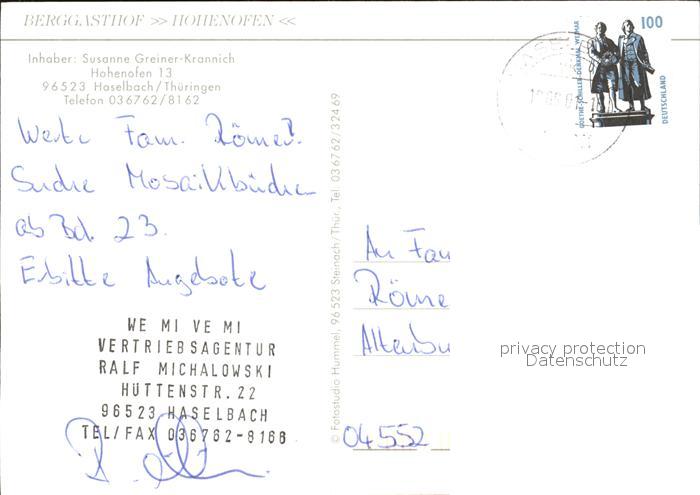 BERGGASTHOF >> HOHENOFEN <<
Inhaber: Susanne Greiner-Krannich
Hohenofen 13
96523 Haselbach/Thüringen
Telefon 036762/8162
Werte Fam. Römer.
Suche Mosaikbücher
ab Bd. 23.
Erbitte Angebote
WE MI VE MI
VERTRIEBSAGENTUR
RALF MICHALOWSKI
HÜTTENSTR. 22
96523 HASELBACH
TEL/FAX 036762-8166
© Fotostudio Hummel, 96523 Steinach/Thür., Tel. 036762/32469
100
GOETHE-SCHILLER-DENKMAL WEIMAR
DEUTSCHLAND
An Fam
Röme
Altenbu
04552
privacy protection
Datenschutz